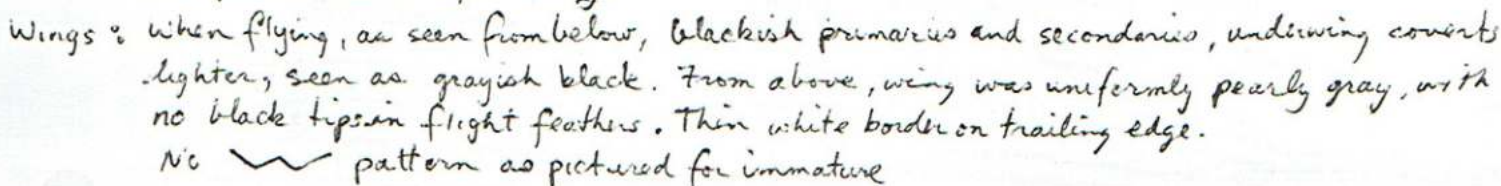 Wings: when flying, as seen from below, blackish primaries and secondaries, underwing coverts
lighter, seen as grayish black. From above, wing was uniformly pearly gray, with
no black tips in flight feathers. Thin white border on trailing edge.
No pattern as pictured for immature